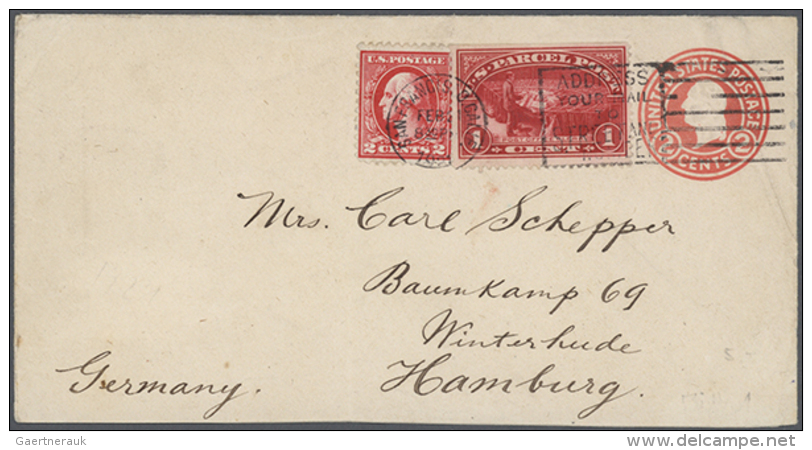 U.S. POSTAGE
2 CENTS 2
U.S. PARCEL POST
1 CENT 1
SAN FRANCISCO, CAL.
FEB
ADDRESS
YOUR MAIL
TO
STREET AND
NUMBER
UNITED STATES POSTAGE
2 CENTS 2
Mrs. Carl Schepper
Baumkamp 69
Winterhude
Hamburg.
Germany.
Gaertnerauk
delcampe.net